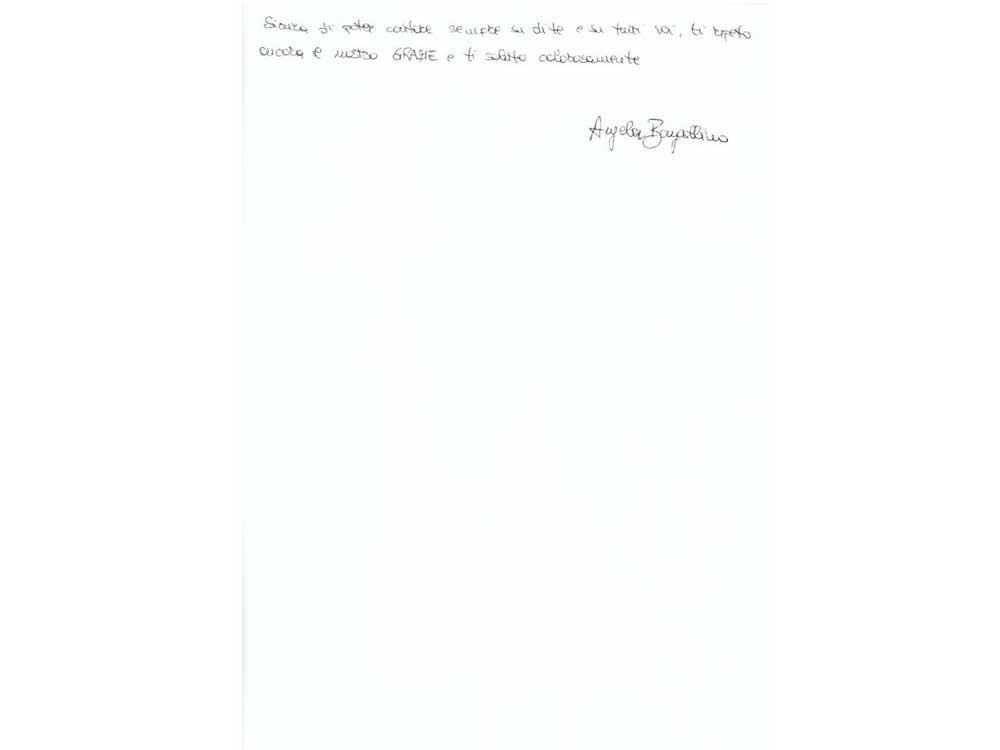 Sicura di poter contare sempre su di te e su tutti voi, ti ripeto
ancora il nostro GRAZIE e ti saluto calorosamente
Angela